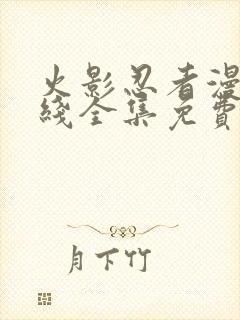 火影忍者漫
綫全集免費
月下竹